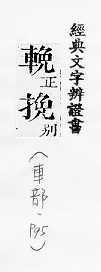 經典文字辨證書
輓正
挽别
（車部·P95）